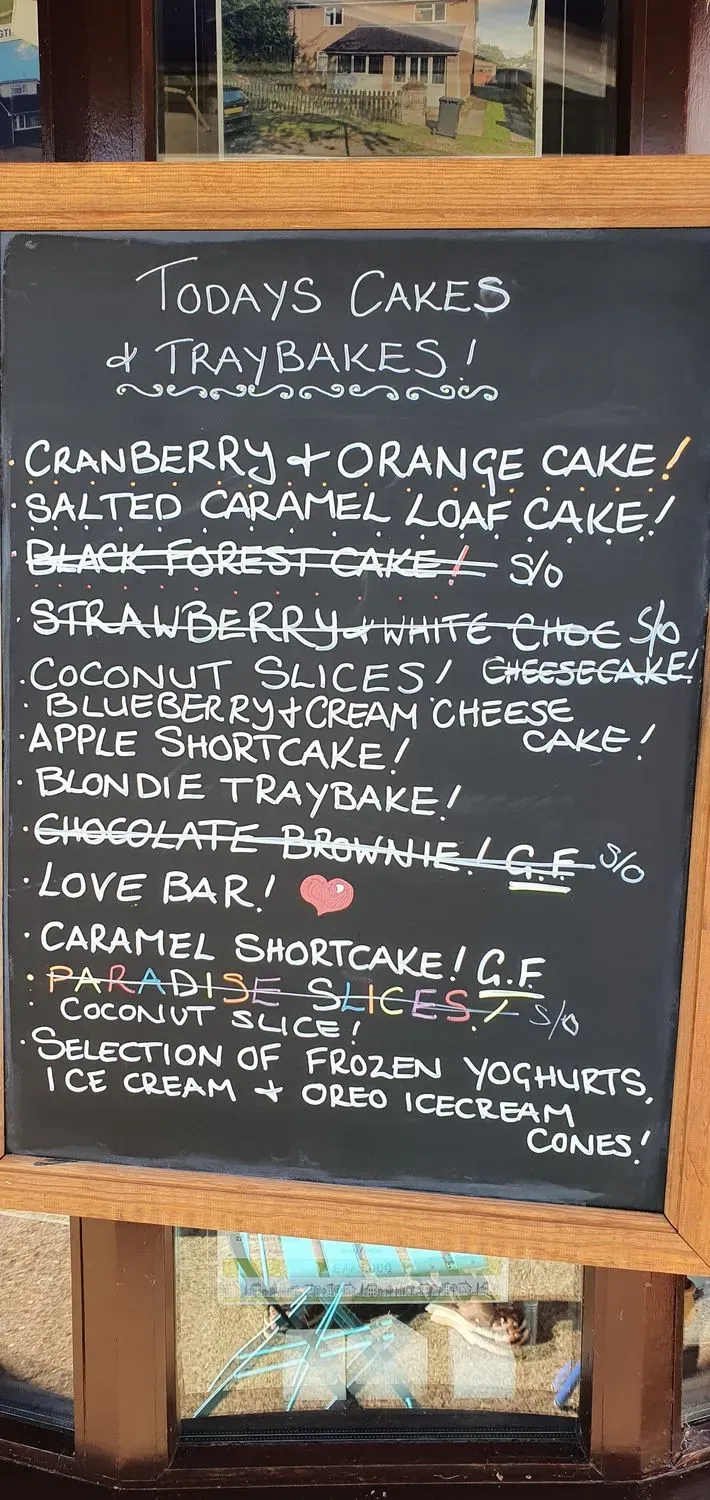 TODAYS CAKES
& TRAYBAKES!
· CRANBERRY + ORANGE CAKE!
· SALTED CARAMEL LOAF CAKE!
· BLACK FOREST CAKE! S/O
· STRAWBERRY + WHITE CHOC S/O
CHEESECAKE!
· COCONUT SLICES!
· BLUEBERRY + CREAM CHEESE
CAKE!
· APPLE SHORTCAKE!
· BLONDIE TRAYBAKE!
· CHOCOLATE BROWNIE! G.F S/O
· LOVE BAR!
· CARAMEL SHORTCAKE! G.F
· PARADISE SLICES! S/O
· COCONUT SLICE!
· SELECTION OF FROZEN YOGHURTS,
ICE CREAM + OREO ICECREAM
CONES!